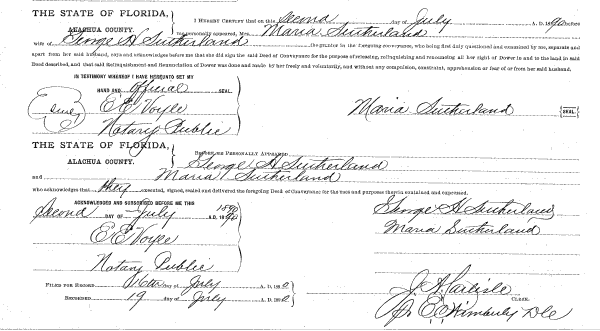 THE STATE OF FLORIDA,
ALACHUA COUNTY.
I HEREBY CERTIFY that on this Second day of July A. D. 1890 before
me personally appeared, Mrs. Maria Sutherland
wife of George H Sutherland the grantor in the foregoing conveyance, who being first duly questioned and examined by me, separate and
apart from her said husband, acknowledges before me that she did sign the said Deed of Conveyance for the purpose of releasing, relinquishing and renouncing all her right of Dower in and to the land in said
Deed described, and that said Relinquishment and Renunciation of Dower was done and made by her freely and voluntarily, and without any compulsion, constraint, apprehension or fear of or from her said husband.
IN TESTIMONY WHEREOF I HAVE HEREUNTO SET MY
HAND AND Official SEAL.
Seal E E Voyle Maria Sutherland SEAL
Notary Public
THE STATE OF FLORIDA,
ALACHUA COUNTY.
BEFORE ME PERSONALLY APPEARED
George H Sutherland
and Maria Sutherland
who acknowledges that they executed, signed, sealed and delivered the foregoing Deed of Conveyance for the uses and purposes therein contained and expressed.
ACKNOWLEDGED AND SUBSCRIBED BEFORE ME THIS
Second DAY OF July A. D. 1890
George H Sutherland
Maria Sutherland
E E Voyle
Notary Public
FILED FOR RECORD 16th day of July A. D. 1890
RECORDED 19 day of July 1890
J. A. Carlisle CLERK.
Pr E E Wimberly D C